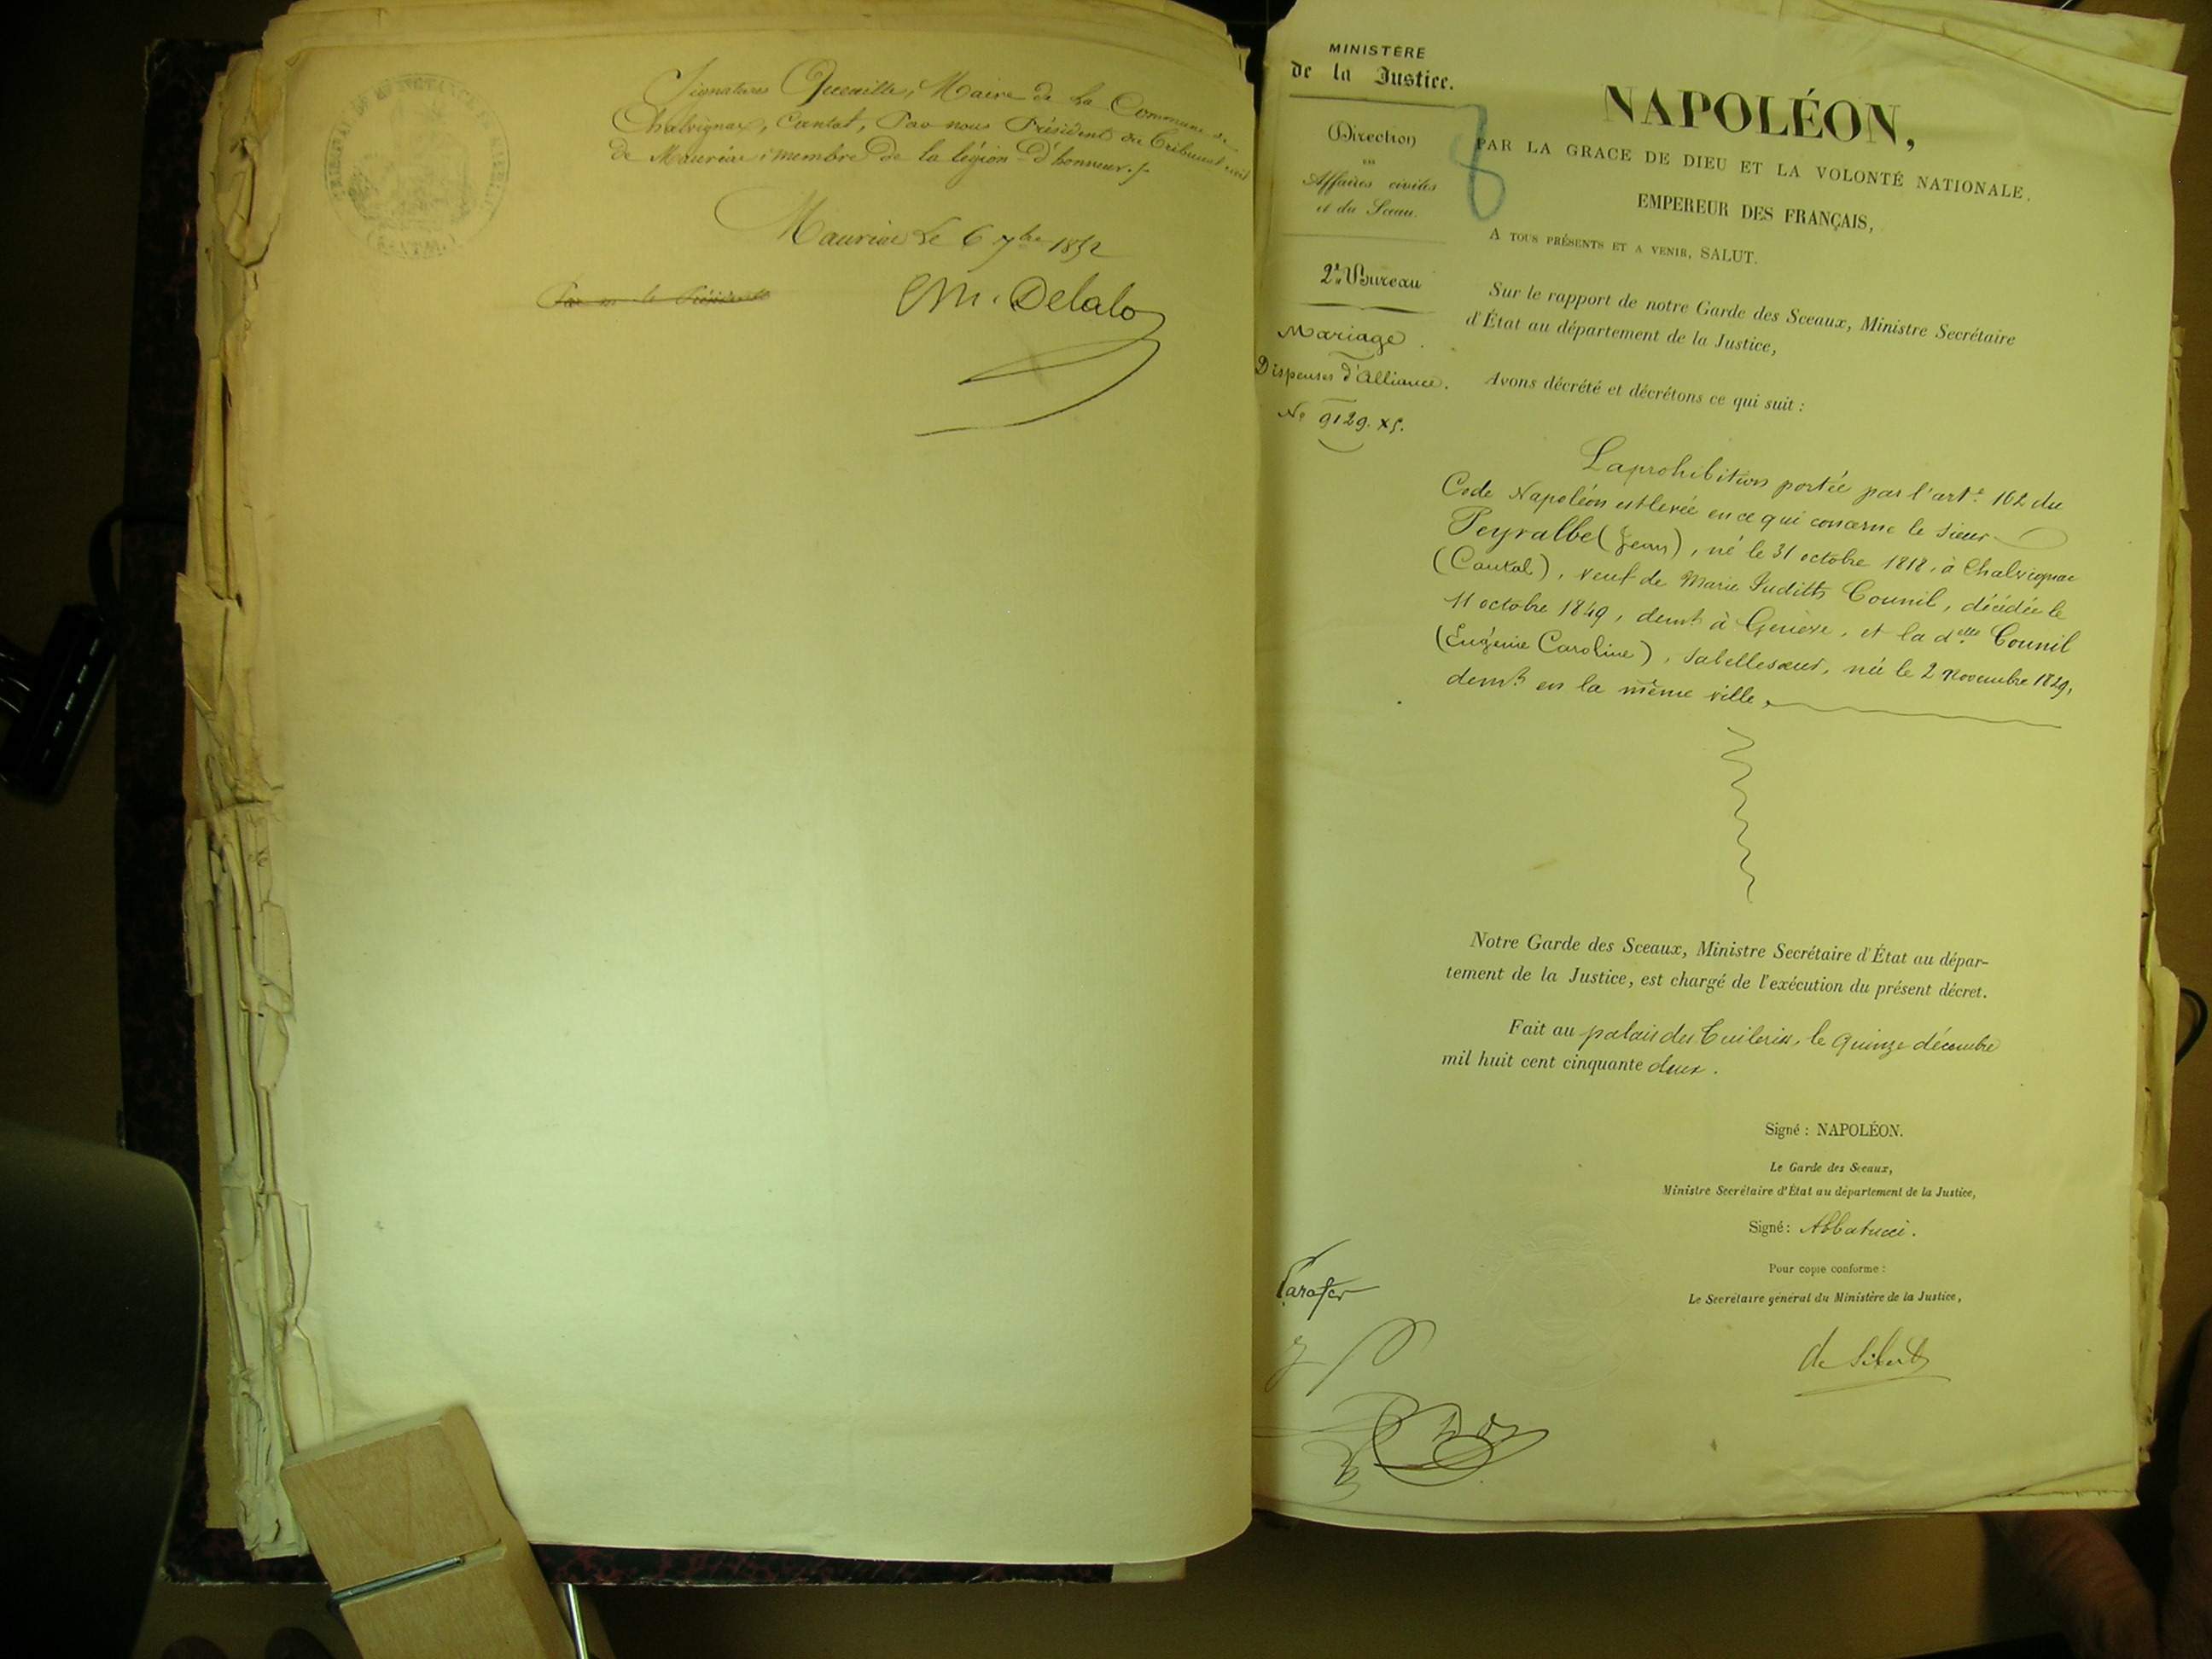 Signatures Maire de la Commune de
Chalvignac, Cantal, Par nous Président du Tribunal civil
de Mauriac, membre de la légion d'honneur ./.
Mauriac Le 6 7bre 1852
Par le Président
Delalo
MINISTÈRE
de la Justice.
Direction
des
Affaires civiles
et du Sceau.
2e Bureau
Mariage.
Dispenses d'Alliance.
No 9129. X5.
8
NAPOLÉON,
PAR LA GRACE DE DIEU ET LA VOLONTÉ NATIONALE,
EMPEREUR DES FRANÇAIS,
A TOUS PRÉSENTS ET A VENIR, SALUT.
Sur le rapport de notre Garde des Sceaux, Ministre Secrétaire
d'État au département de la Justice,
Avons décrété et décrétons ce qui suit :
La prohibition portée par l'arte 162 du
Code Napoléon est levée en ce qui concerne le sieur
Peyralbe (Jean), né le 31 octobre 1818, à Chalvignac
(Cantal), veuf de Marie Judith Counil, décédée le
11 octobre 1849, demt à Genève, et la delle Counil
(Eugénie Caroline), sa belle soeur, née le 2 novembre 1829,
demt en la même ville,
Notre Garde des Sceaux, Ministre Secrétaire d'État au dépar-
tement de la Justice, est chargé de l'exécution du présent décret.
Fait au palais des Tuileries, le quinze décembre
mil huit cent cinquante deux.
Signé : NAPOLÉON.
Le Garde des Sceaux,
Ministre Secrétaire d'État au département de la Justice,
Signé : Abbatucci.
Pour copie conforme :
Le Secrétaire général du Ministère de la Justice,
de Sibert